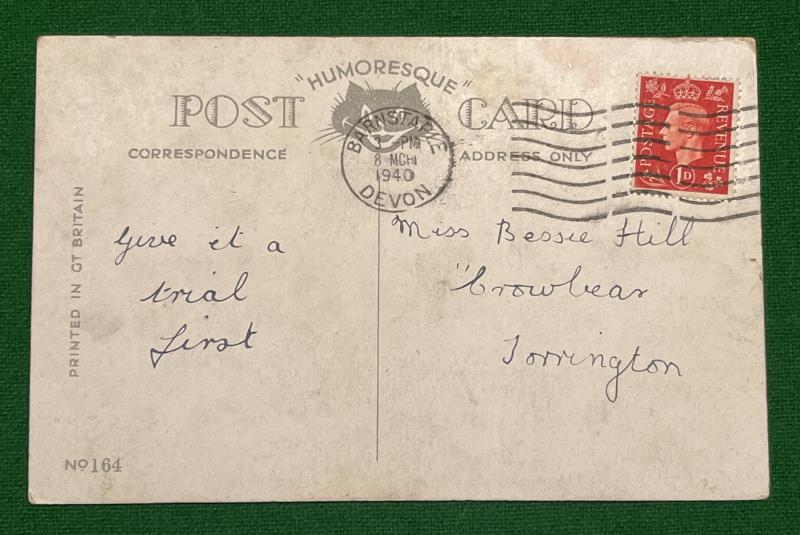 "HUMORESQUE"
POST CARD
CORRESPONDENCE
ADDRESS ONLY
BARNSTAPLE
PM
8 MCH
1940
DEVON
POSTAGE
REVENUE
1D
PRINTED IN GT BRITAIN
Give it a
trial
first
Miss Bessie Hill
"Crowbear
Torrington
No 164